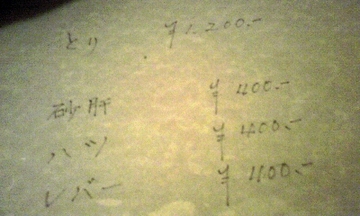 とり ¥1,200.-
砂肝 ¥400.-
ハツ ¥400.-
レバー ¥400.-